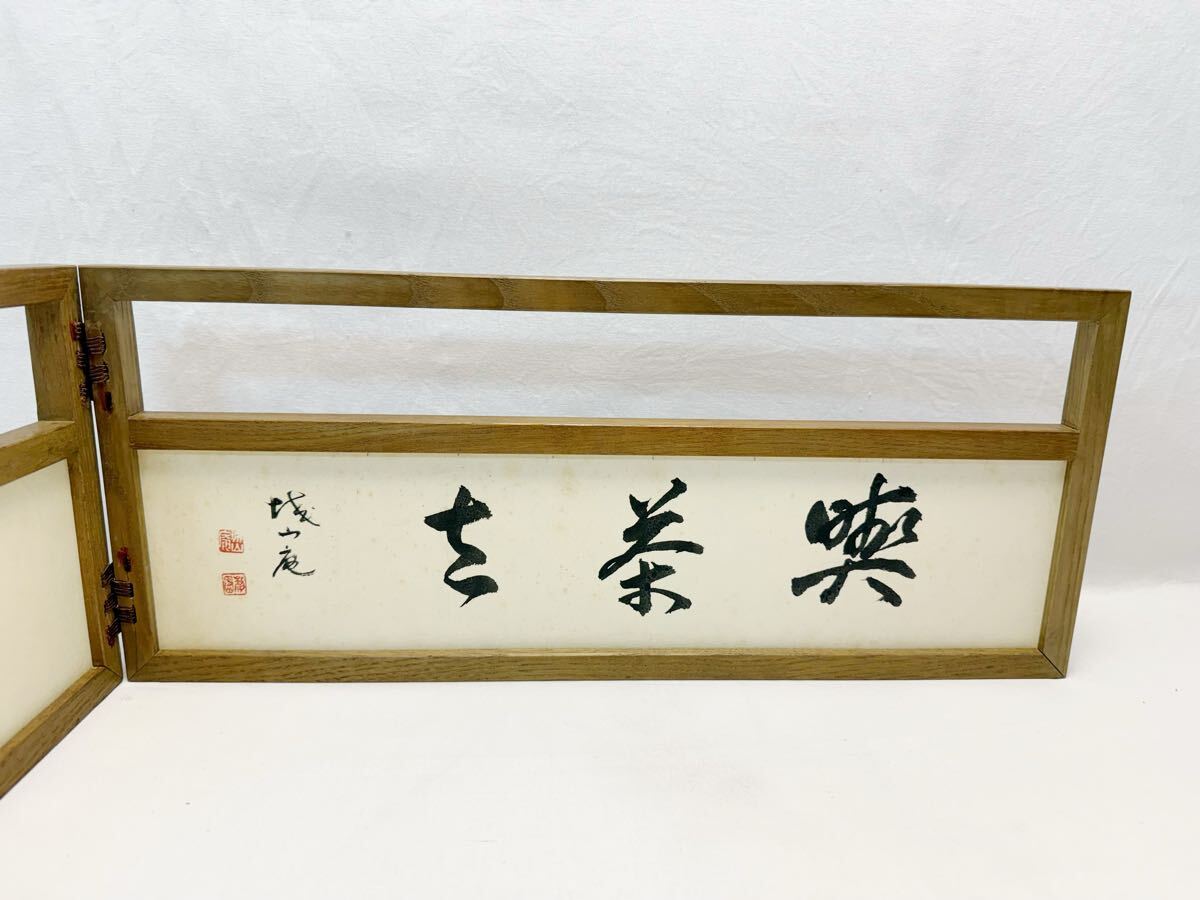 喫茶去
城山庵